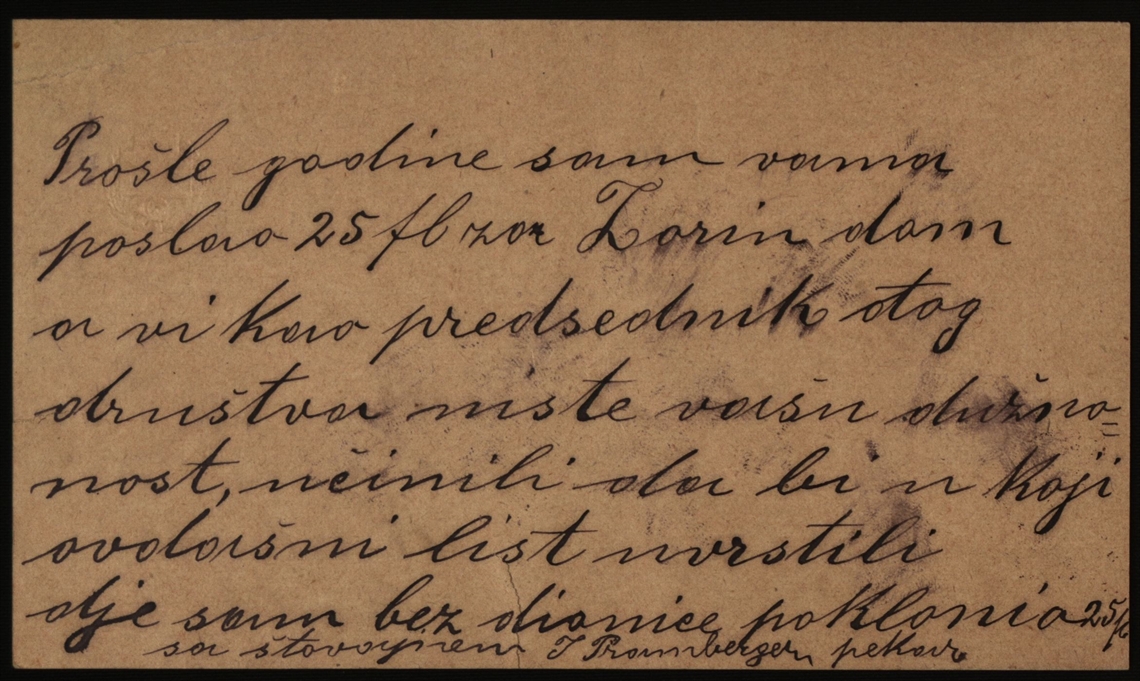 Prošle godine sam vama
poslao 25 fl za Zorin dom
a vi kao predsednik otog
društva niste vašu dužno=
nost, učinili da bi u koji
ovdašni list uvrstili
dje sam bez dionice poklonio 25 fl
sa štovanjem J Pramberger, pekar